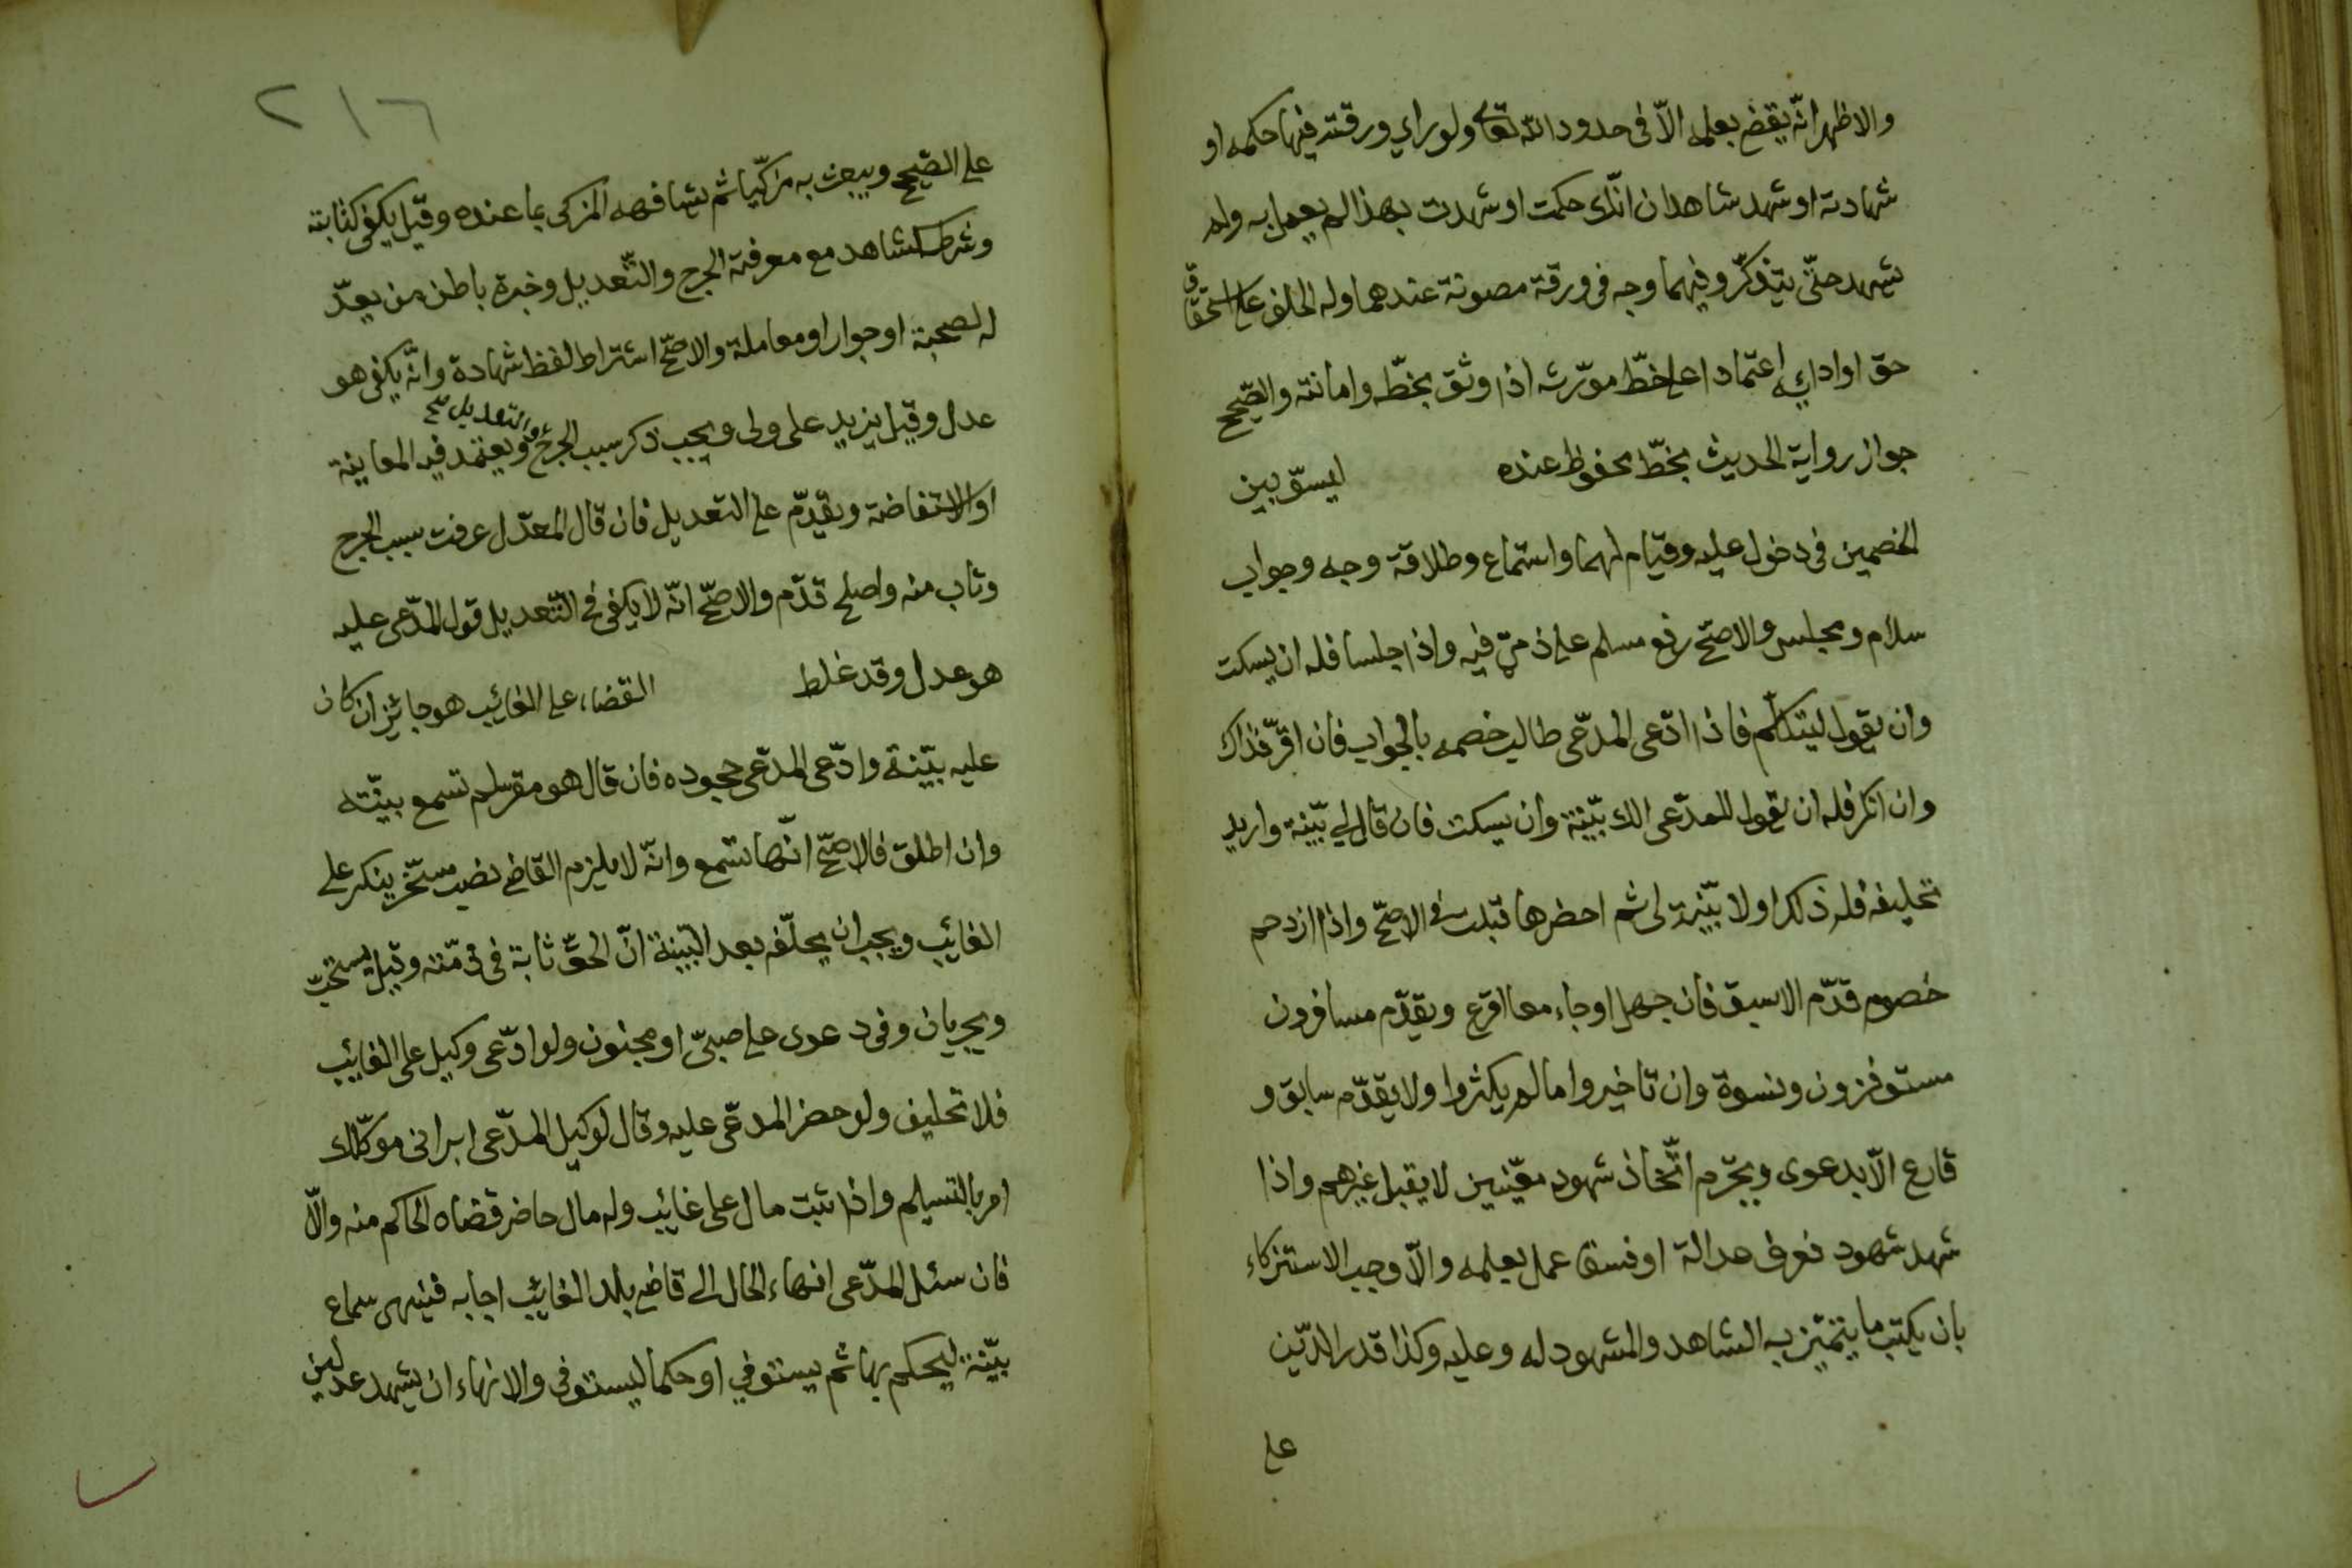 والاظهر انّه يقضى بعلمه الّا فى حدود الله تعالى ولو راى ورقة فيها حكمه او
شهادته او شهد شاهدان انّك حكمت او شهدت بهذا لم يعمل به ولم
يشهد حتّى يتذكّر وفيهما وجه فى ورقة مصونة عندهما وله الحلف على استحقاق
حق او ادائه اعتمادا على خطّ مورّثه اذا وثق بخطّه وامانته والصّحيح
جواز رواية الحديث بخطّ محفوظ عنده ليسوّ بين
الخصمين فى دخول عليه وقيام لهما واستماع وطلاقة وجه وجواب
سلام ومجلس والاصحّ رفع مسلم على ذمّى فيه واذا جلسا فله ان يسكت
وان يقول ليتكلّم فاذا ادّعى المدّعى طالب خصمه بالجواب فان اقرّ فذاك
وان انكر فله ان يقول للمدّعى الك بيّنة وان يسكت فان قال لى بيّنة واريد
تحليفه فله ذلك او لا بيّنة لى ثم احضرها قبلت فى الاصحّ واذا ازدحم
خصوم قدّم الاسبق فان جهل او جاء معا اقرع ويقدّم مسافرون
مستوفزون ونسوة وان تاخيروا ما لم يكثروا ولا يقدّم سابق و
قارع الّا بدعوى ويحرّم اتّخاذ شهود معيّنين لا يقبل غيرهم واذا
شهد شهود فعرف عدالة او فسقا عمل بعلمه والّا وجب الاستزكاء
بان يكتب ما يتميّز به الشاهد والمشهود له وعليه وكذا قدر الدّين
على
٢١٦
على الصّحيح ويبعث به مزكّيا ثم يشافهه المزكى بما عنده وقيل يكفى كتابته
وشرطه كشاهد مع معرفة الجرح والتّعديل وخبرة باطن من يعدّ
له لصحبة او جوار او معاملة والاصحّ اشتراط لفظ شهادة وانّه يكفى هو
عدل وقيل يزيد على ولى ويجب ذكر سبب الجرح ويعتمد فيه المعاينة
والتعديل صح
او الاستفاضة ويقدّم على التعديل فان قال المعدّل عرفت سبب الجرح
وتاب منه واصلح قدّم والاصحّ انّه لا يكفى فى التّعديل قول المدّعى عليه
هو عدل وقد غلط القضاء على الغائب هو جائز ان كان
عليه بيّنة وادّعى المدّعى جحوده فان قال هو مقر لم تسمع بيّنته
وان اطلق فالاصحّ انّها تسمع وانّه لا يلزم القاضى نصب مسخّر ينكر على
الغائب ويجب ان يحلّفه بعد البيّنة انّ الحقّ ثابة فى ذمّته وقيل يستحبّ
ويجريان وفى دعوى على صبىّ او مجنون ولو ادّعى وكيل على الغائب
فلا تحليف ولو حضر المدعّى عليه وقال لوكيل المدّعى ابرانى موكّلك
امر بالتسليم واذا ثبت مال على غائب وله مال حاضر قضاه الحاكم منه والّا
فان سئل المدّعى انهاء الحال الى قاضى بلد الغائب اجابه فينهى سماع
بيّنة ليحكم بها ثم يستوفي او حكما ليستوفي والانهاء ان يشهد عدلين